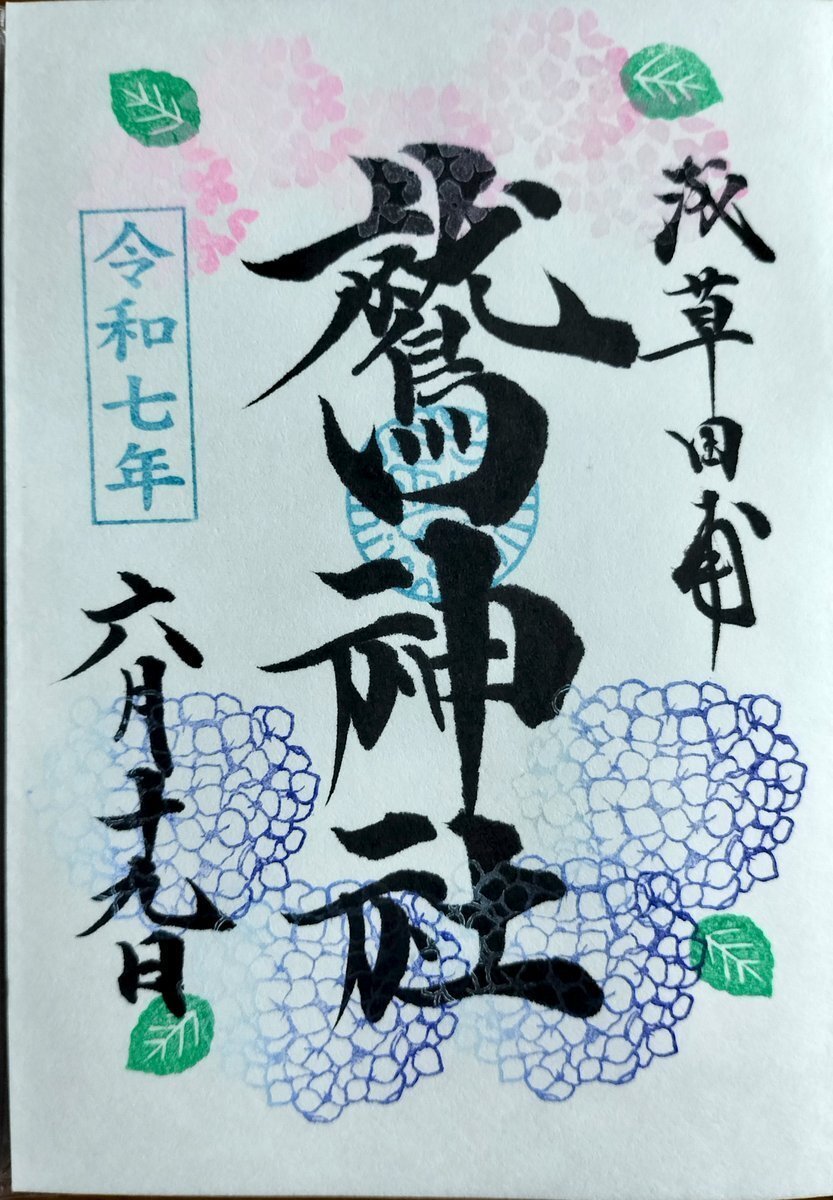 浅草田甫
鷲神社
令和七年
六月十九日